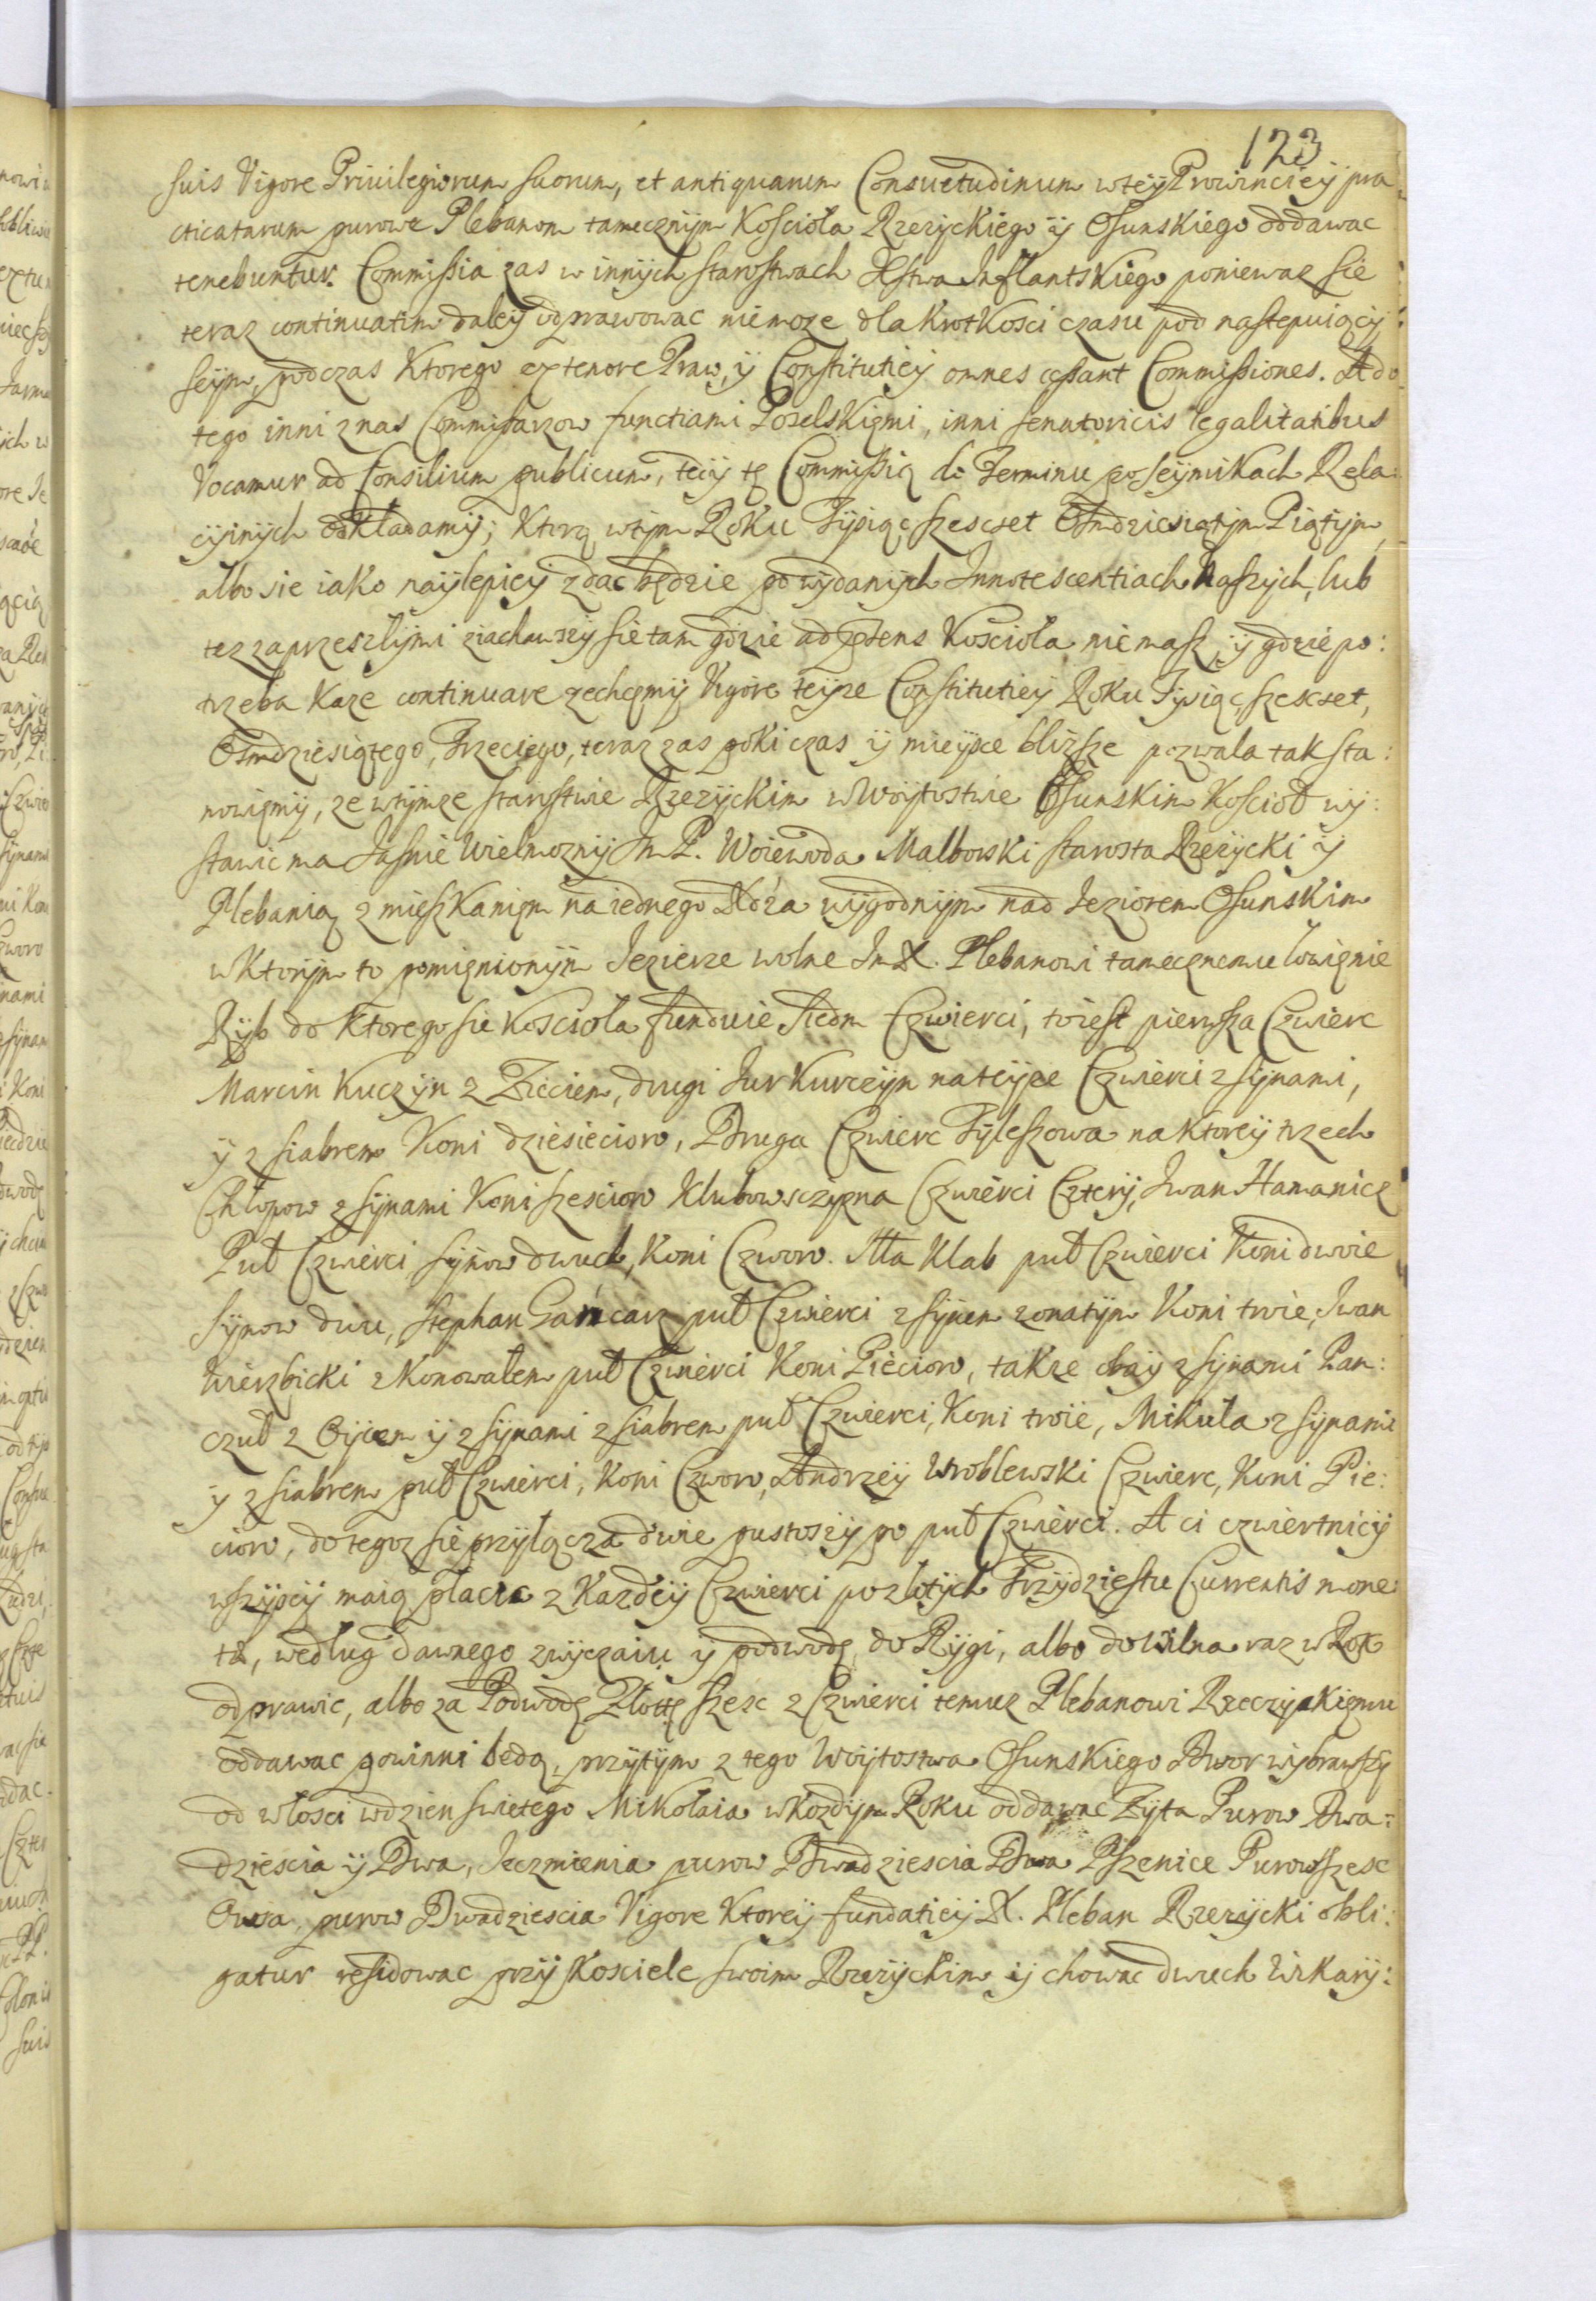 123
suis Vigore Priuilegiorum suorum, et antiquarum Consuetudinum wteÿ Prowincieÿ pra
cticatarum purowe Plebanom tamecznÿm Kosciola Rzezÿckiego ÿ Osunskiego oddawac
tenebuntur. Commissia zas w innÿch starostwach Xstwa Inflantskiego poniewaz sie
teraz continuatim daleÿ odprawowac niemoze dla krotkosci czasu pod nastepuiącÿ
seÿm, podczas Ktorego ex tenore Praw, ÿ Constitutieÿ omnes cessant Commissiones. A do
tego inni z nas Commisarzow functiami Poselskiemi, inni senatoricis legalitatibus
Vocamur ad Consilium publicum, tedÿ tę Commissią do Terminu po seÿmikach Rela:
cÿinÿch odkładamÿ; Ktorą wtÿm Roku Tÿsiąc szescset Osmdziesiątÿm Piątÿm,
albo sie iako naÿlepieÿ zdac będzie po wÿdanÿch Innotescentiach naszÿch, lub
tez zaprzeszlÿmi ziachawszÿ sie tam gdzie ad ptens Kosciola niemasz, ÿ gdzie po:
trzeba Kaze continuare zechcemÿ Vigore teÿze Constitutieÿ Roku Tÿsiąc, szescset,
Osmdziesiątego, Trzeciego, teraz zas poki czas ÿ mieÿsce blizsze pozwala tak sta:
nowiemÿ, ze wtÿmze starostwie Rzezÿckim w Woÿtostwie Osunskim Koscioł wÿ:
stawic ma Jasnie Wielmoznÿ Im P. Woiewoda Malborski starosta Rzezÿcki ÿ
Plebanią z mieszkaniem na iednego Xdza wÿgodnÿm nad Jeziorem Osunskim
w Ktorÿm to pomienionÿm Jezierze wolne Im X. Plebanowi tamecznemu lowienie
Rÿb do Ktorego sie Kosciola funduie Siedm Czwierci, to iest pierwsza Czwierc
Marcin Kuczÿn z Zieciem, drugi Jur Kurceÿm na teÿze Czwierci z sÿnami,
ÿ z siabrem Koni dziesiecioro, Druga Czwierc Tÿleszowa na Ktoreÿ trzech
Chłopow z sÿnami Koni szescioro Klubowsczÿzna Czwierci Czterÿ, Iwan Hamanicz
Puł Czwierci sÿnow dwuch, Koni Czworo. Atta Klab puł Czwierci Koni dwoie
sÿnow dwu, Stephan Garncarz puł Czwierci z sÿnem zonatÿm Koni troie, Iwan
Wierzbicki z Konowałem puł Czwierci Koni Piecioro, takze obaÿ z sÿnami Pan:
czuł z Oÿcem ÿ z sÿnami z siabrem puł Czwierci, Koni troie, Mikuła z sÿnami
ÿ z siabrem puł Czwierci, Koni Czworo, Andrzeÿ Wroblewski Czwierc, Koni Pie:
cioro, do tegoz sie przÿlącza dwie pustoszÿ po puł Czwierci. A ci czwiertnicÿ
wszÿscÿ maią płacic z Kazdeÿ Czwierci po złotÿch Trzÿdziestu Currentis mone
ta, według dawnego zwÿczaiu ÿ podwodę do Rÿgi, albo do Wilna raz w Rok
odprawic, albo za Podwodę Złotÿ szesc z Czwierci temuz Plebanowi Rzezÿckiemu
oddawac powinni będą, przÿtÿm z tego Woÿtostwa Osunskiego Dwor wÿbrawszÿ
od włosci wdzien swietego Mikołaia w Kozdÿm Roku oddawac Zÿta Purow Dwa:
dziescia ÿ Dwa, Ieczmienia purow Dwadziescia Dwa Pszenice Purow szesc
Owsa, purow Dwadziescia Vigore Ktoreÿ fundatieÿ X. Pleban Rzezÿcki obli:
gatur residowac przÿ Kosciele swoim Rzezÿckim ÿ chowac dwuch Wikarÿ: